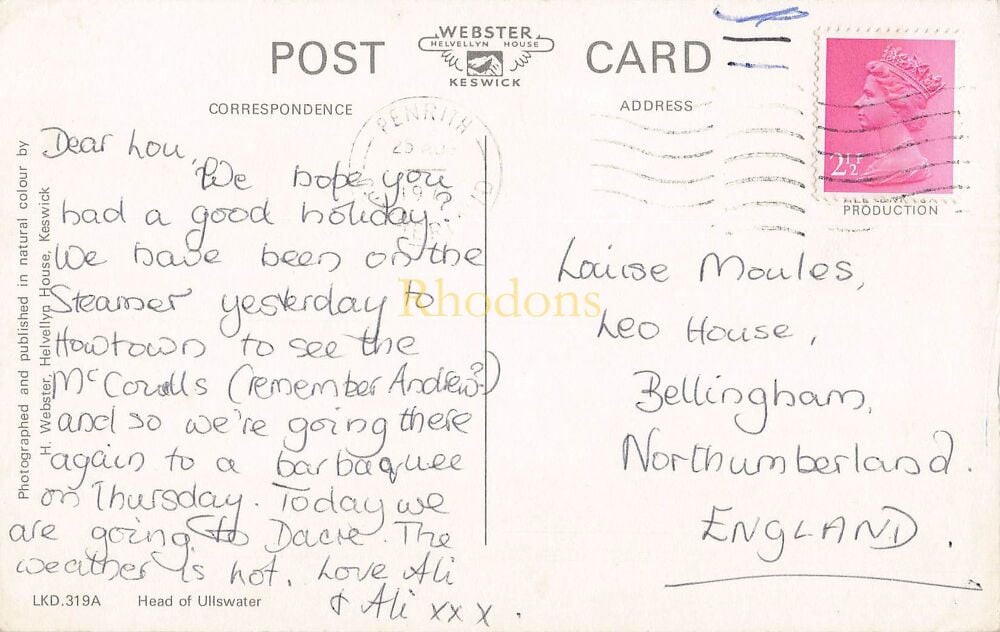 POST CARD
WEBSTER
HELVELLYN HOUSE
KESWICK
CORRESPONDENCE
ADDRESS
Photographed and published in natural colour by
H. Webster, Helvellyn House, Keswick
Dear Lou,
We hope you
had a good holiday.
We have been on the
Steamer yesterday to
Howtown to see the
McCoulls (remember Andrew?)
and so we're going there
again to a barbaquee
on Thursday. Today we
are going to Dacre. The
weather is hot. Love Ali
& Ali x x x.
PENRITH
25 AUG
2½P
PRODUCTION
Louise Moules,
Leo House,
Bellingham,
Northumberland.
ENGLAND.
Rhodons
LKD.319A Head of Ullswater